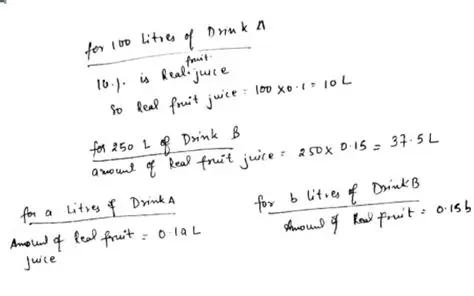 for 100 Litres of Drink A
10 %. is Real fruit juice
So Real fruit juice = 100 x 0.1 = 10 L
for 250 L of Drink B
amount of Real fruit juice = 250 x 0.15 = 37.5 L
for a Litres of Drink A
Amount of Real fruit = 0.1a L
juice
for b litres of Drink B
Amount of Real fruit = 0.15b